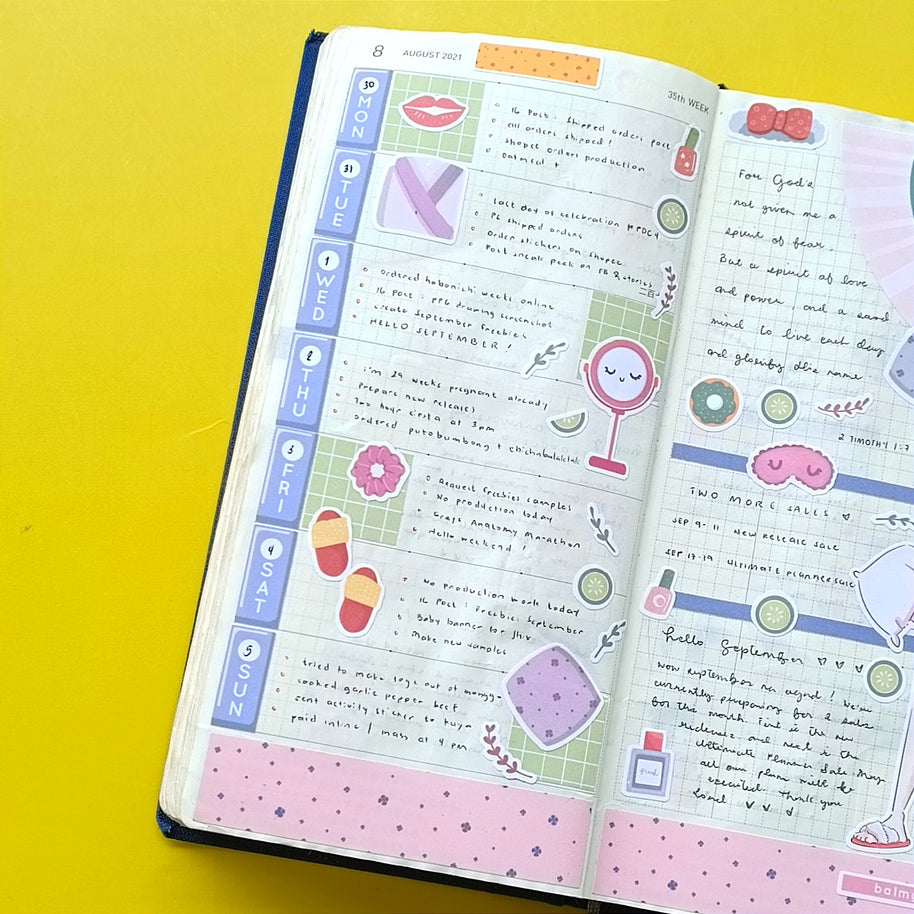 8 AUGUST 2021
35th WEEK
30 MON
IG Post: Shipped orders post
All orders shipped!
Shopee orders production
Oatmeal +
31 TUE
Last day of celebration
PG shipped orders
Order stickers on shopee
Post sneak peek on FB & stories
1 WED
Ordered hobonichi weeks online
IG Post: drawing screenshot
Create September Freebies
HELLO SEPTEMBER!
2 THU
I'm 29 weeks pregnant already
Prepare new releases
Two hour siesta at 3pm
Ordered putobumbong +
3 FRI
Request freebies samples
No production today
Greys Anatomy Marathon
Hello weekend!
4 SAT
No production work today
IG Post: Freebie September
Baby banner for
Make new samples
5 SUN
tried to make toge out of
cooked garlic pepper beef
sent activity sticker to
paid inline / mass at 4 pm
For God's
not given me a
spirit of fear.
But a spirit of love
and power and a sound
mind to live each day
and glorify the name
2 TIMOTHY 1:7
TWO MORE SALES
SEP 9-11 NEW RELEASE SALE
SEP 17-19 ULTIMATE PLANNER SALE
hello September
Wow september na agad! We're
currently preparing for 2 sales
for the month. First is the new
releases and next is the
Ultimate Planner Sale. May
all our plans will be
executed. Thank you
Lord
fresh
balmy